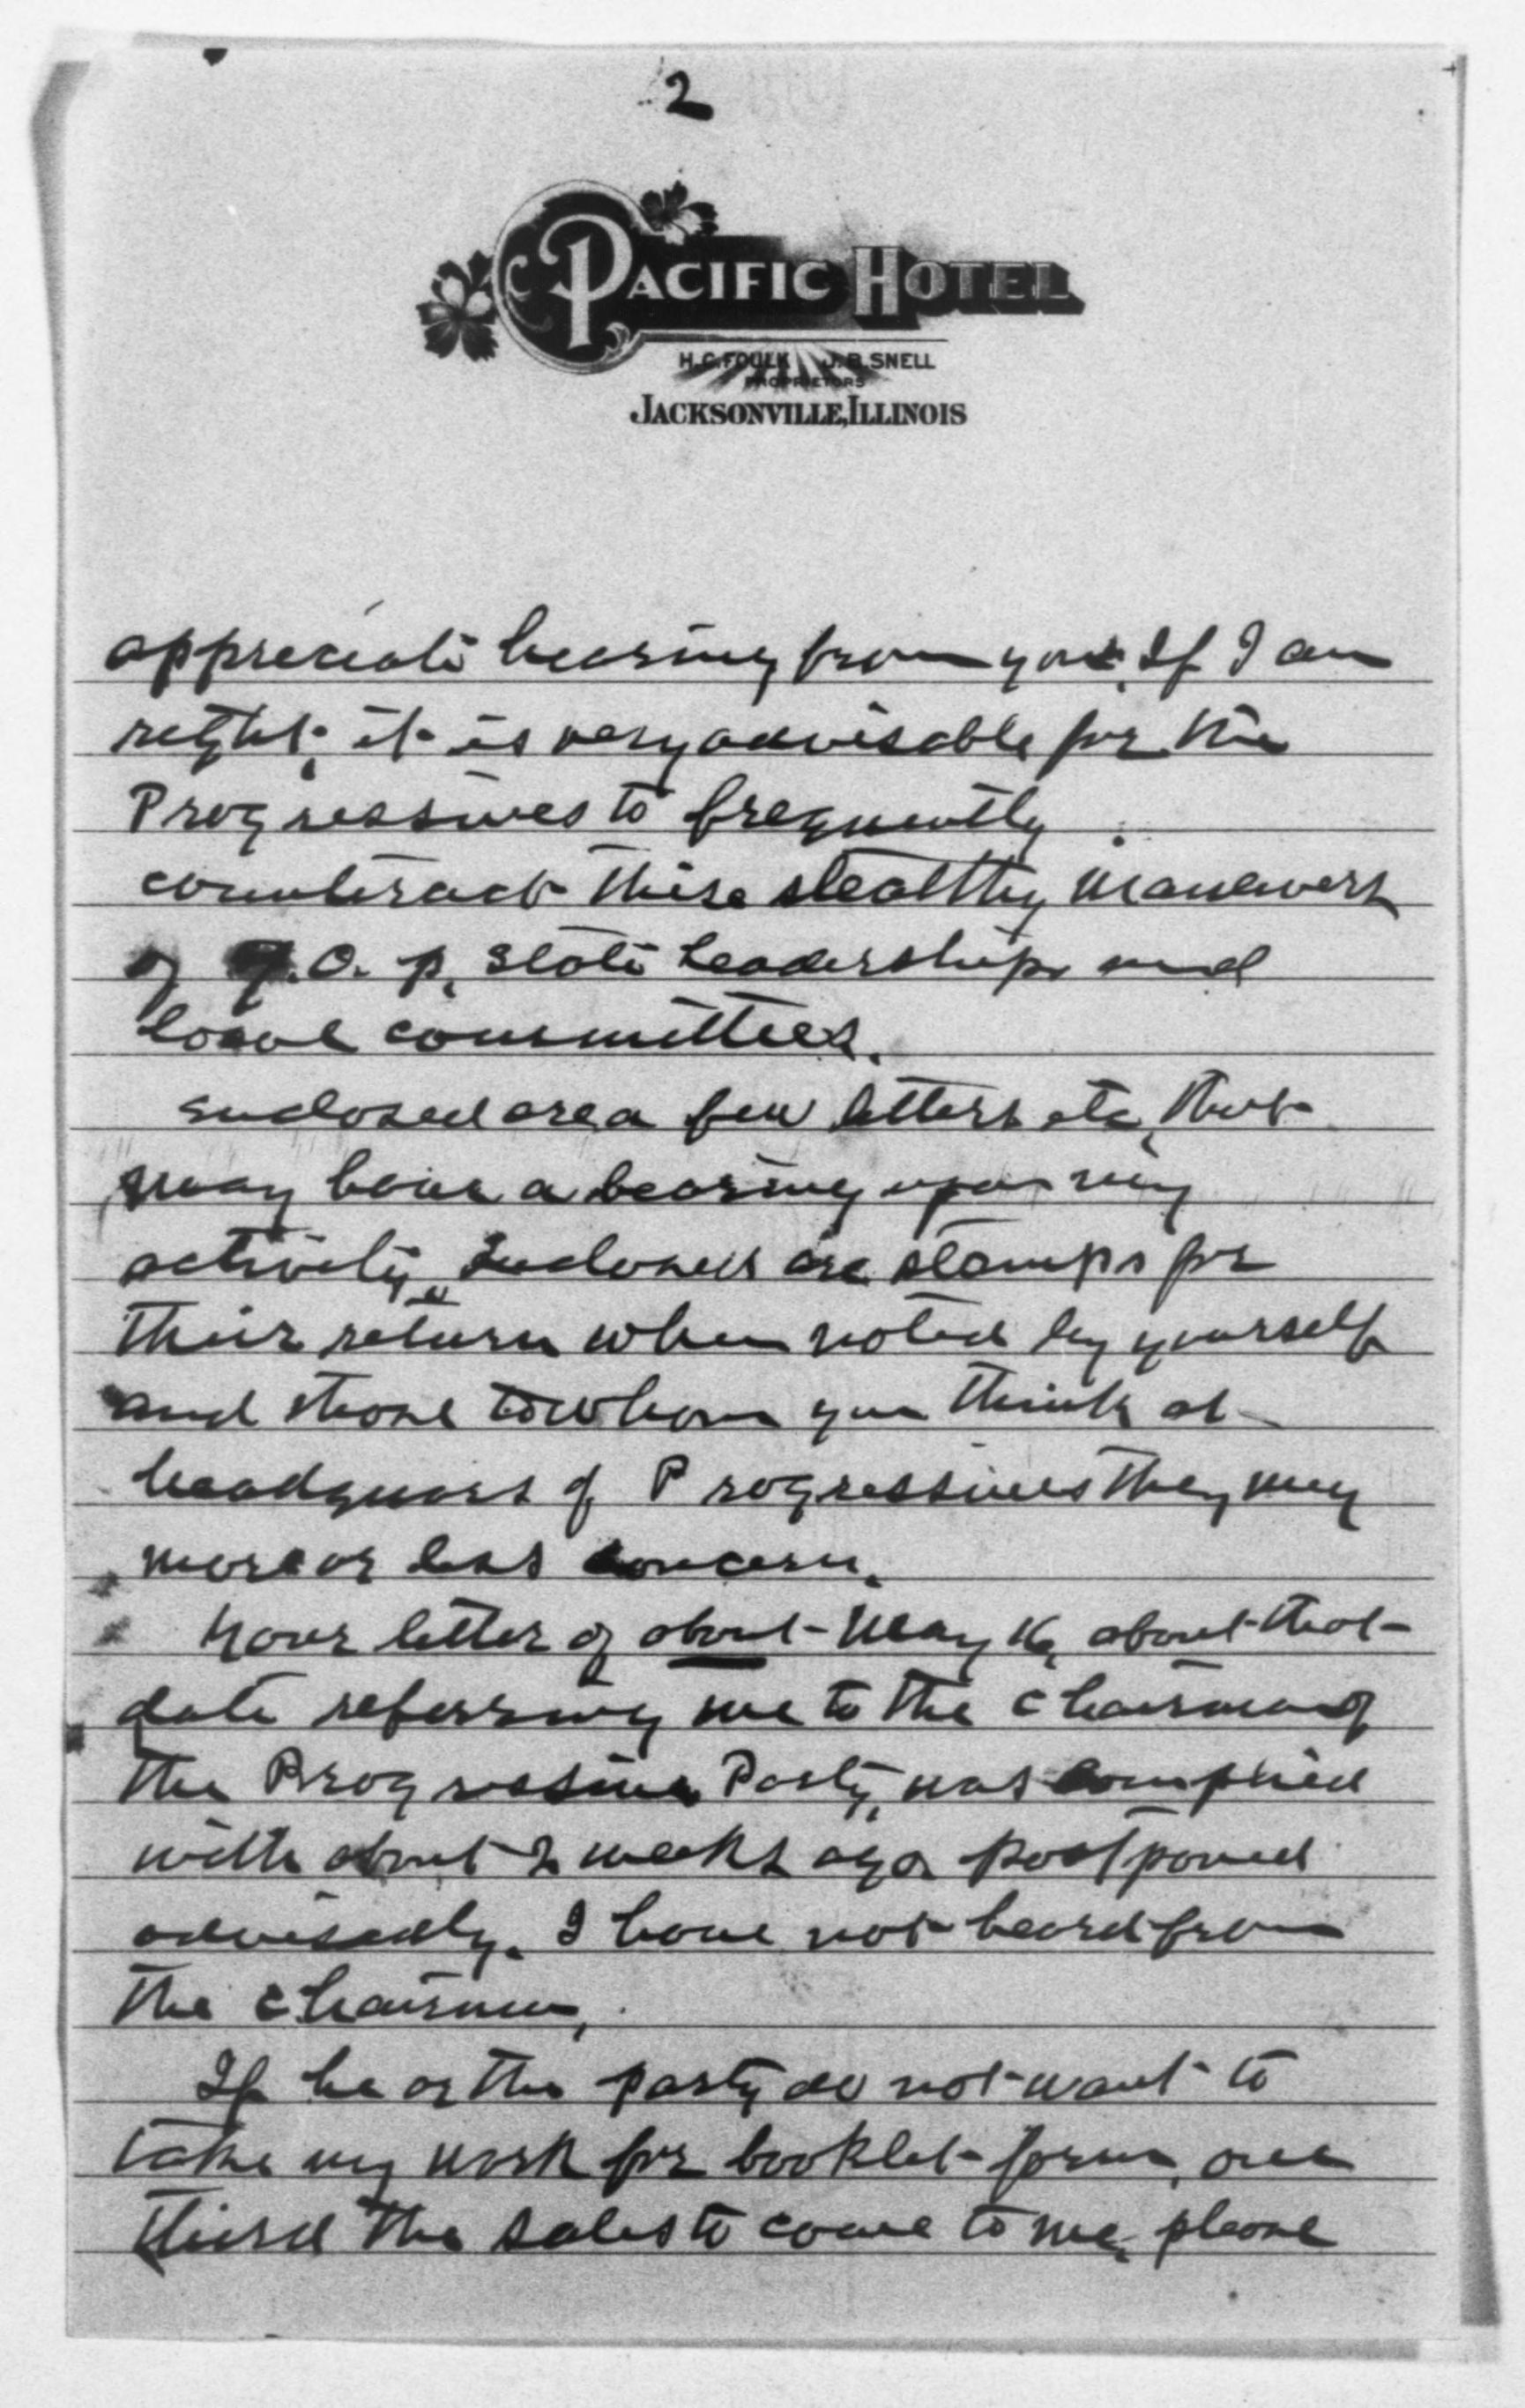 2
PACIFIC HOTEL
H.C. FOULK J.R. SNELL
PROPRIETORS
JACKSONVILLE, ILLINOIS
appreciate hearing from you. If I am
right, it is very advisable for the
Progressives to frequently
counteract these stealthy maneuvers
of g.o.p. state leaderships and
local committees.
Enclosed are a few letters etc, that
may have a bearing upon my
activity. Enclosed are stamps for
their return when noted by yourself
and those to whom you think at
headquars of Progressives they may
more or less concern.
Your letter of about May 16, about that
date referring me to the Chairman of
the Progressive Party, was complied
with about 2 weeks ago postponed
advisedly. I have not heard from
the Chairman,
If he or the party do not want to
take my work for booklet form, one
third the sales to come to me, please